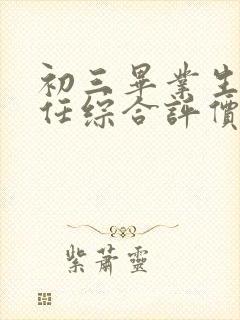 初三畢業生
任綜合評價
紫蕭靈